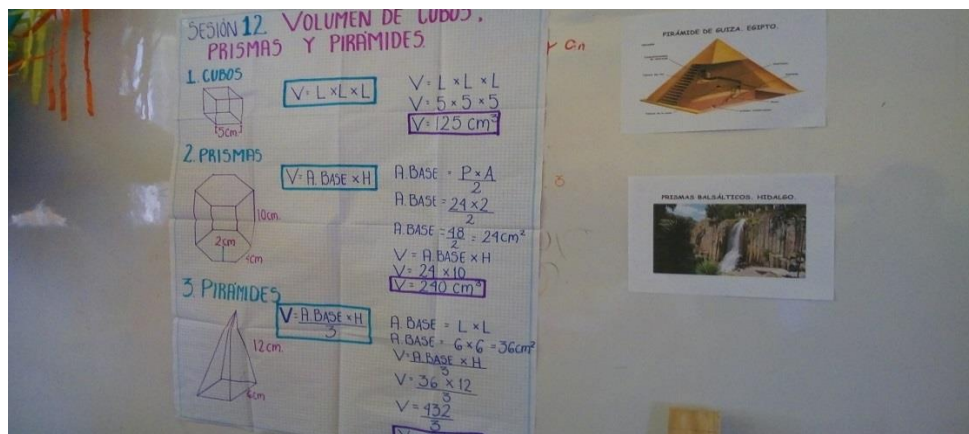 SESIÓN 12. VOLUMEN DE CUBOS,
PRISMAS Y PIRAMIDES.
1. CUBOS
5cm
V= L×L×L
V= L × L × L
V= 5 × 5 × 5
V= 125 cm³
2. PRISMAS
10cm.
2cm
4cm
V= A. BASE × H
A. BASE = P × A
2
A. BASE = 24 × 2
2
A. BASE = 48 = 24cm²
2
V= A. BASE × H
V= 24 × 10
V= 240 cm³
3. PIRÁMIDES
12cm.
6cm
V= A. BASE × H
3
A. BASE = L × L
A. BASE = 6 × 6 = 36cm²
V= A. BASE × H
3
V= 36 × 12
3
V= 432
3
PIRÁMIDE DE GUIZA. EGIPTO.
PRISMAS BALSÁLTICOS. HIDALGO.